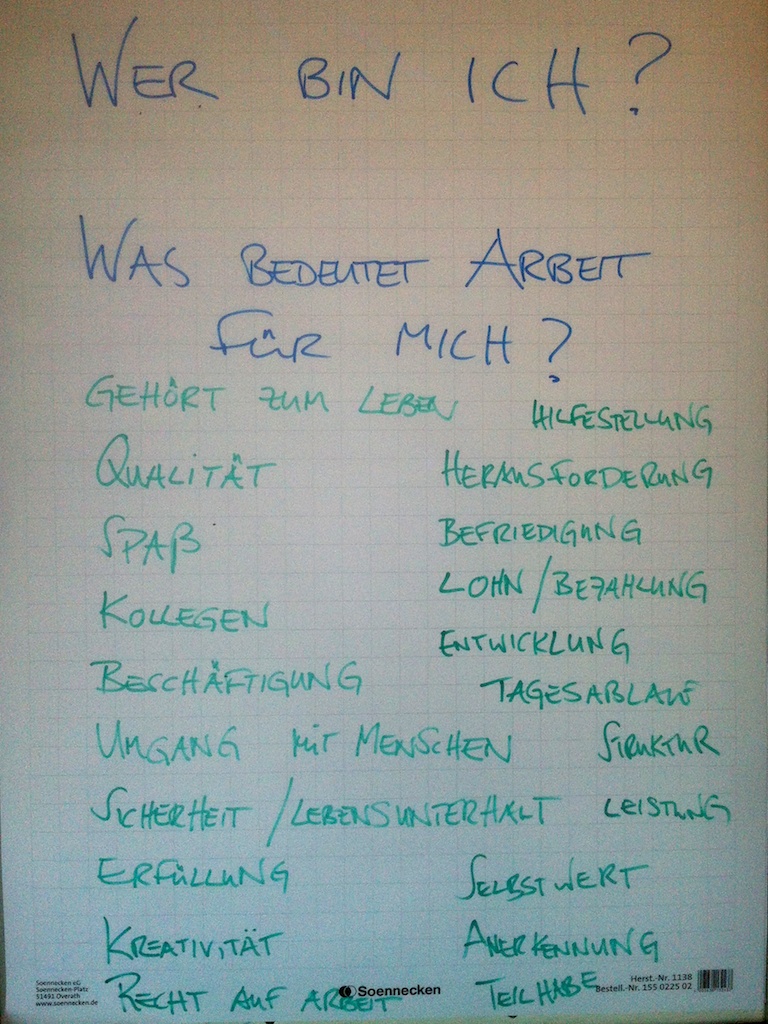 WER BIN ICH?
WAS BEDEUTET ARBEIT
FÜR MICH?
GEHÖRT ZUM LEBEN
HILFESTELLUNG
QUALITÄT
HERAUSFORDERUNG
SPAß
BEFRIEDIGUNG
KOLLEGEN
LOHN/BEZAHLUNG
ENTWICKLUNG
BESCHÄFTIGUNG
TAGESABLAUF
UMGANG MIT MENSCHEN
STRUKTUR
SICHERHEIT/LEBENSUNTERHALT
LEISTUNG
ERFÜLLUNG
SELBSTWERT
KREATIVITÄT
ANERKENNUNG
RECHT AUF ARBEIT
TEILHABE
Soennecken eG
Soennecken-Platz
51491 Overath
www.soennecken.de
Soennecken
Herst.-Nr. 1138
Bestell.-Nr. 155 0225 02